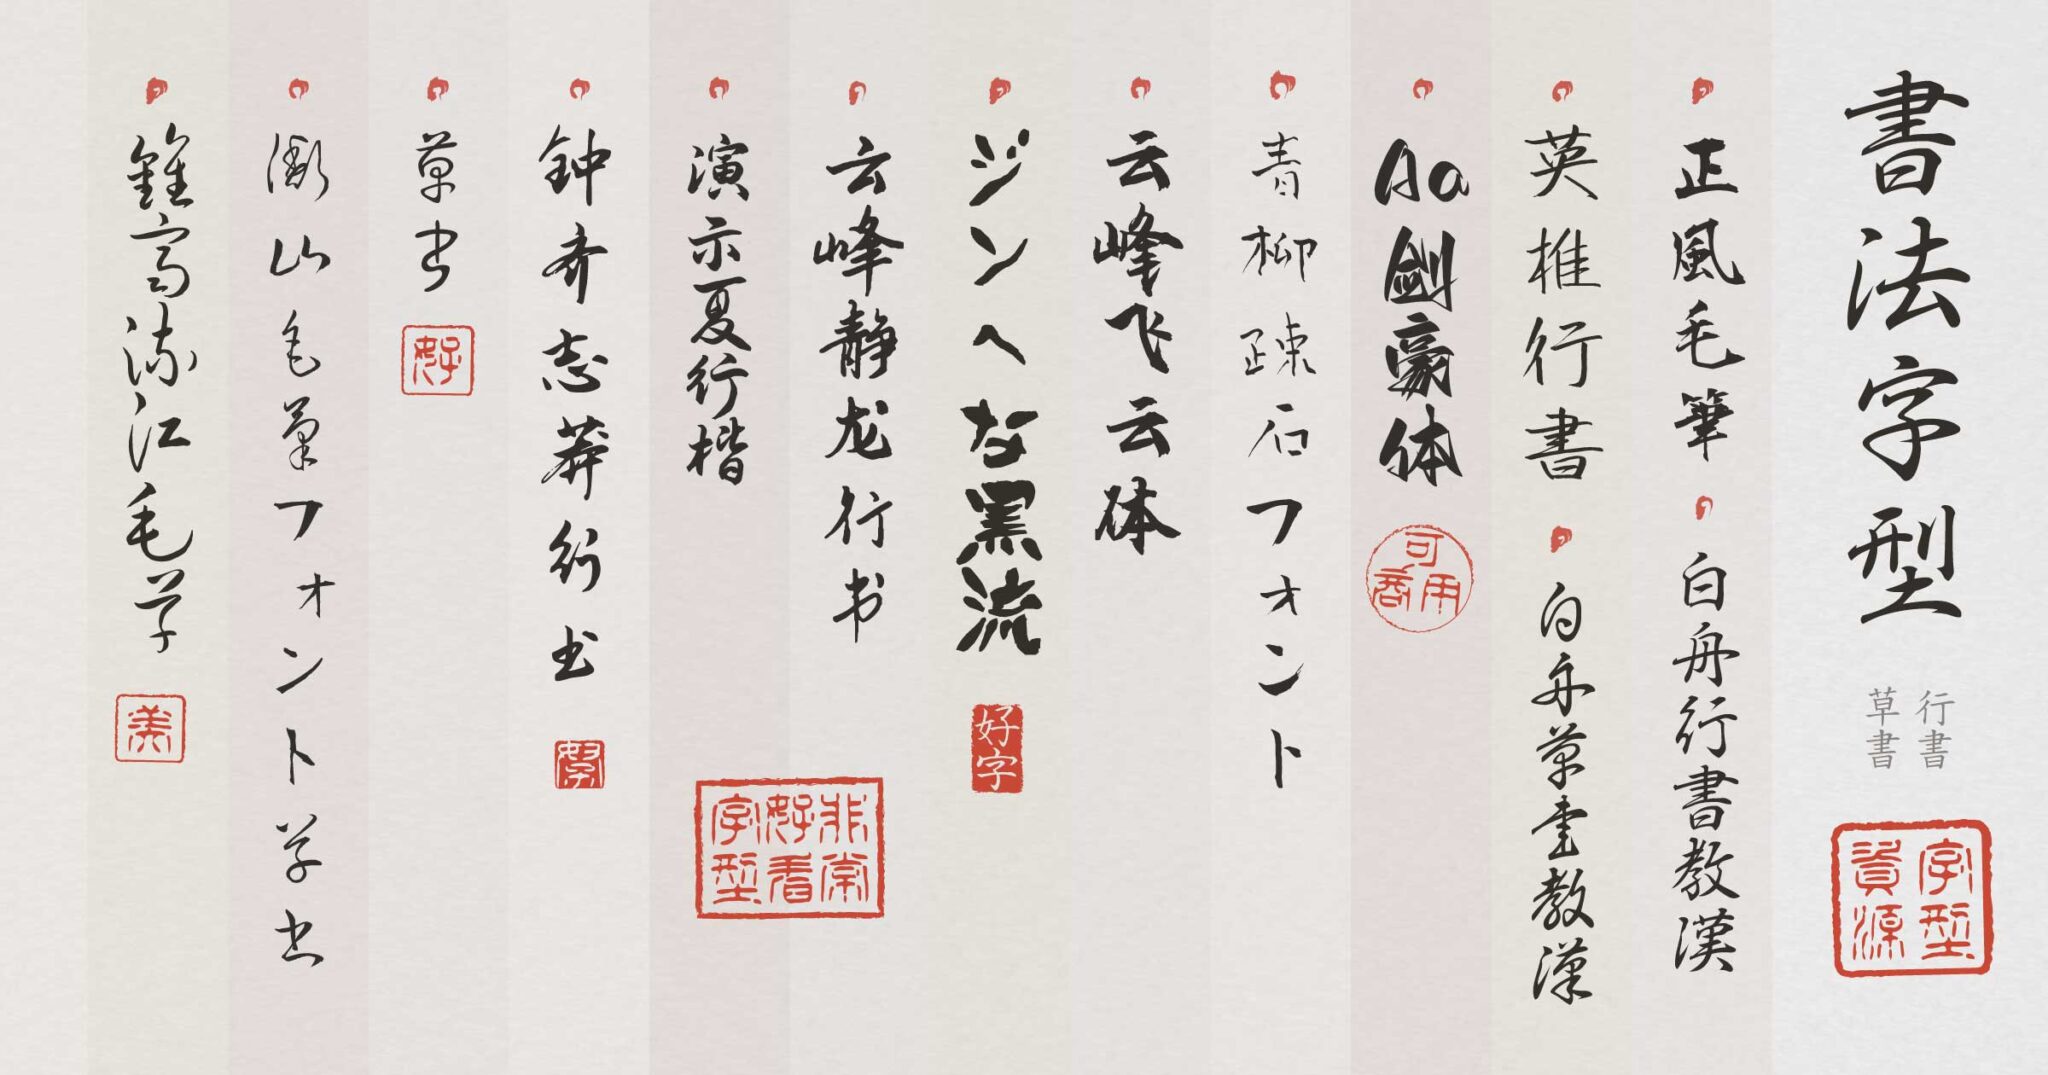 書法字型
行書
草書
字型資源
正風毛筆
白舟行書教漢
英椎行書
白舟草書教漢
Aa剑豪体
可商用
青柳疎石フォント
云峰飞云体
ジンへな黒流
好字
云峰静龙行书
演示夏行楷
非常好看字型
钟齐志莽行书
草书
好
衡山毛筆フォント草书
鍾齊流江毛草
美